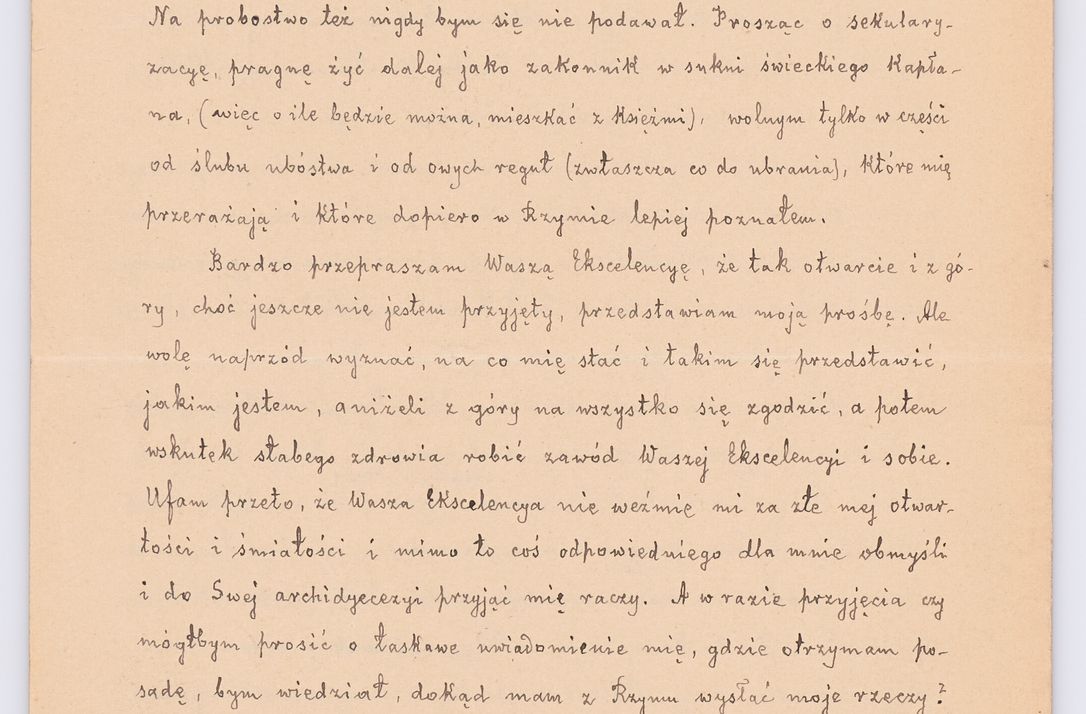 Na probostwo też nigdy bym się nie podawał. Prosząc o sekulary-
zacyę, pragnę żyć dalej jako zakonnik w sukni świeckiego Kapła-
na, (więc o ile będzie można, mieszkać z Księżmi), wolnym tylko w części
od ślubu ubóstwa i od owych reguł (zwłaszcza co do ubrania), Które mię
przerażają i Które dopiero w Rzymie lepiej poznałem.
Bardzo przepraszam Waszą Ekscelencyę, że tak otwarcie i z gó-
ry, choć jeszcze nie jestem przyjęty, przedstawiam moją prośbę. Ale
wolę naprzód wyznać, na co mię stać i takim się przedstawić,
jakim jestem, aniżeli z góry na wszystko się zgodzić, a potem
wskutek słabego zdrowia robić zawód Waszej Ekscelencyi i sobie.
Ufam przeto, że Wasza Ekscelencya nie weźmie mi za złe mej otwar-
tości i śmiałości i mimo to coś odpowiedniego dla mnie obmyśli
i do Swej archidyecezyi przyjąć mię raczy. A w razie przyjęcia czy
mógłbym prosić o łaskawe uwiadomienie mię, gdzie otrzymam po-
sadę, bym wiedział, dokąd mam z Rzymu wysłać moje rzeczy?